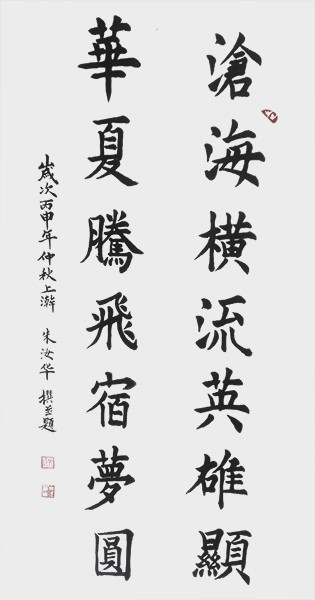 滄海橫流英雄顯
華夏騰飛宿夢圓
歲次丙申年仲秋上澣 朱汝华 撰並題